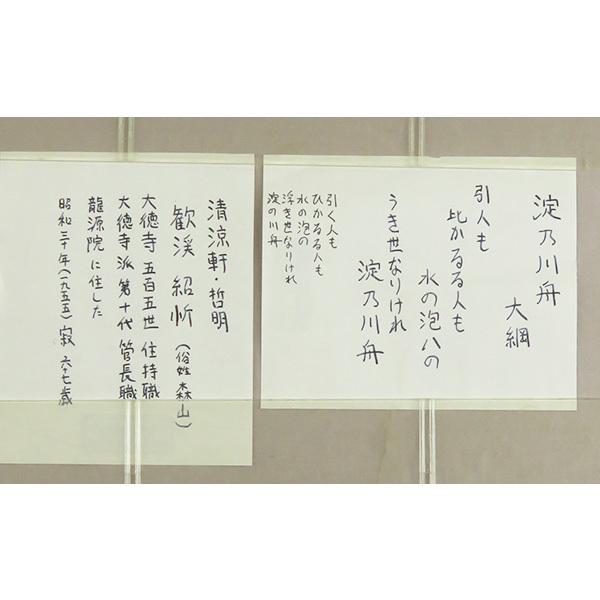 淀乃川舟
大綱
引人も
比かるる人も
水の泡八の
うき世なりけれ
淀乃川舟
引く人も
ひかるる人も
水の泡の
浮き世なりけれ
淀の川舟
清涼軒・哲明
歓渓 紹忻 (俗姓 森山)
大徳寺 五百五世 住持職
大徳寺派 第十代 管長職
龍源院に住した
昭和三十年(一九五五) 寂 六十七歳